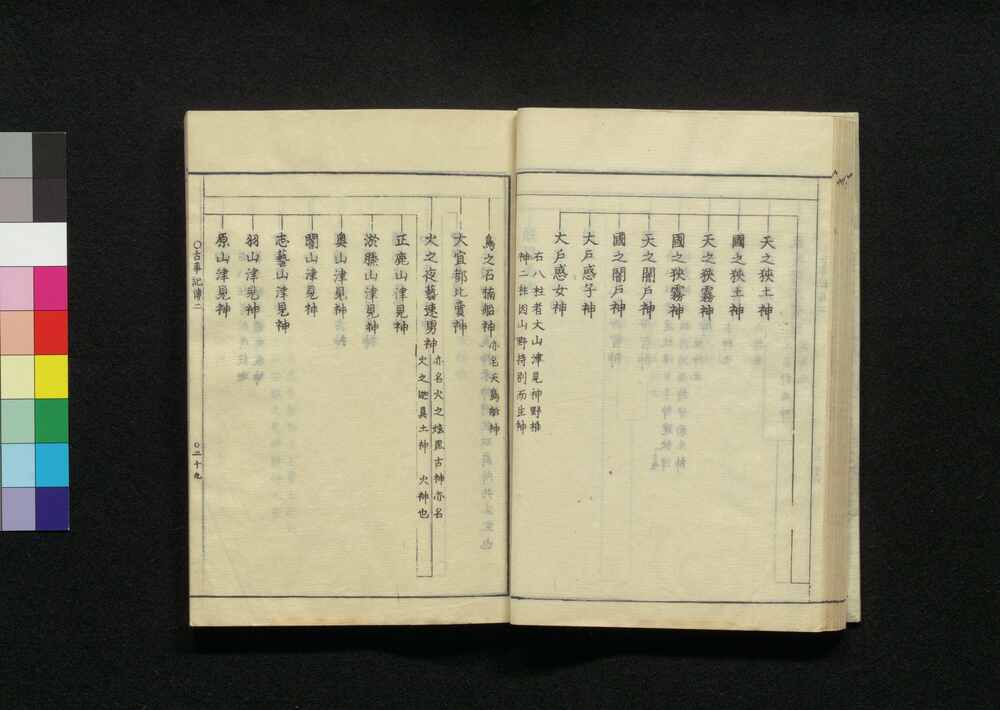 天之狹土神
國之狹土神
天之狹霧神
國之狹霧神
天之闇戶神
國之闇戶神
大戶惑子神
大戶惑女神
右八柱者大山津見神野椎
神二柱因山野持別而生神
鳥之石楠船神
亦名天鳥船神
大宜都比賣神
火之夜藝速男神
亦名火之炫毘古神亦名
火之迦具土神 火神也
正鹿山津見神
淤縢山津見神
奧山津見神
闇山津見神
志藝山津見神
羽山津見神
原山津見神
〇古事記傳二
〇二十九